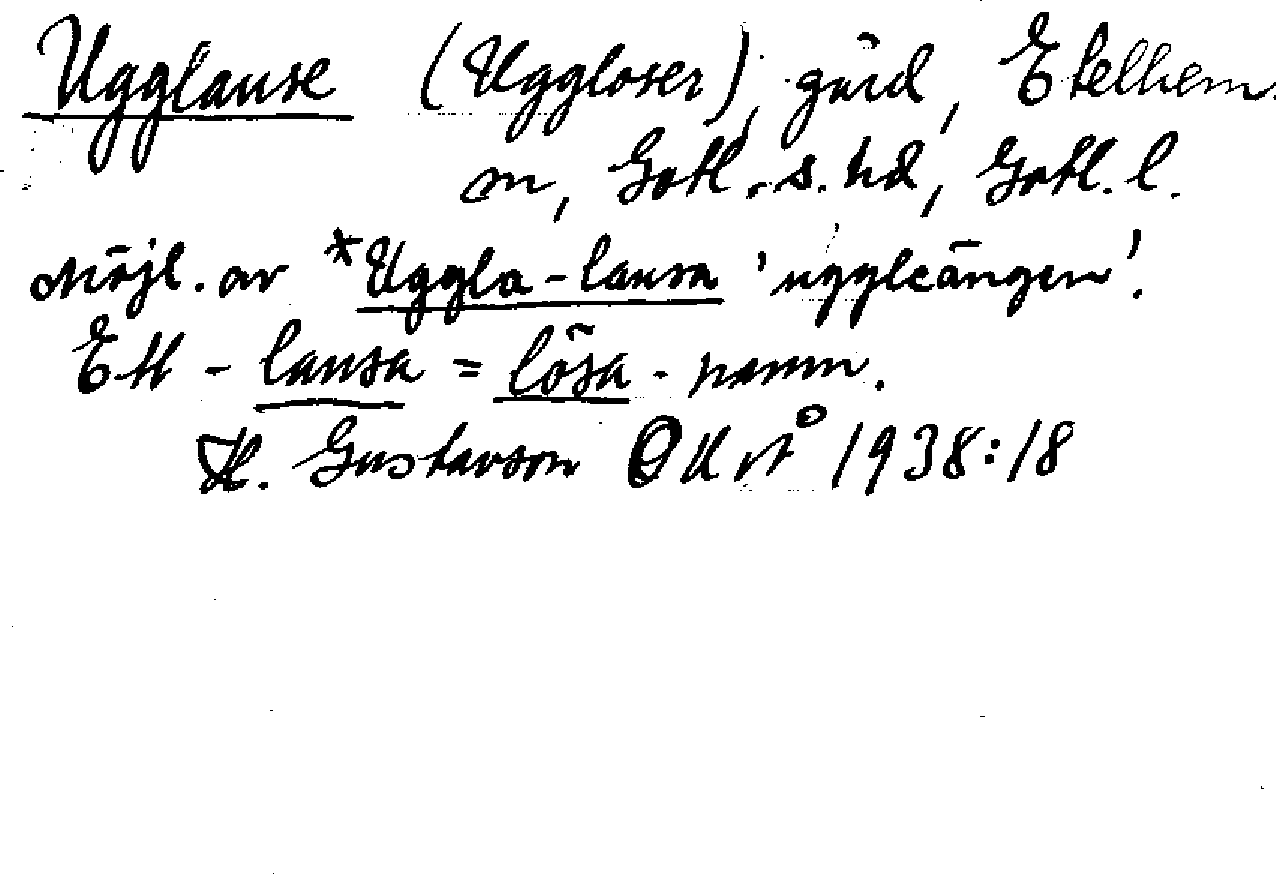 Ugglause (Uggloser), gård, Etelhem
sn, Gotl. s. hd, Gotl. l.
Möjl. av *Uggla-lausa 'uggleängen'.
Ett -lausa = lösa-namn.
H. Gustavson 1938:18